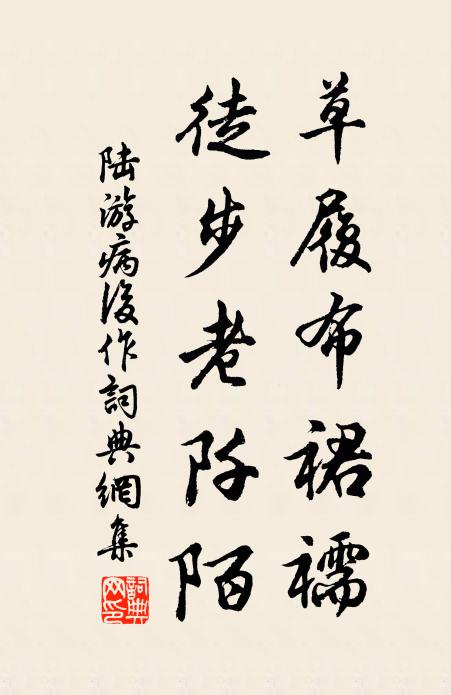 草履布裙襦
徒步老阡陌
陆游病後作詞典網集
詞典網印